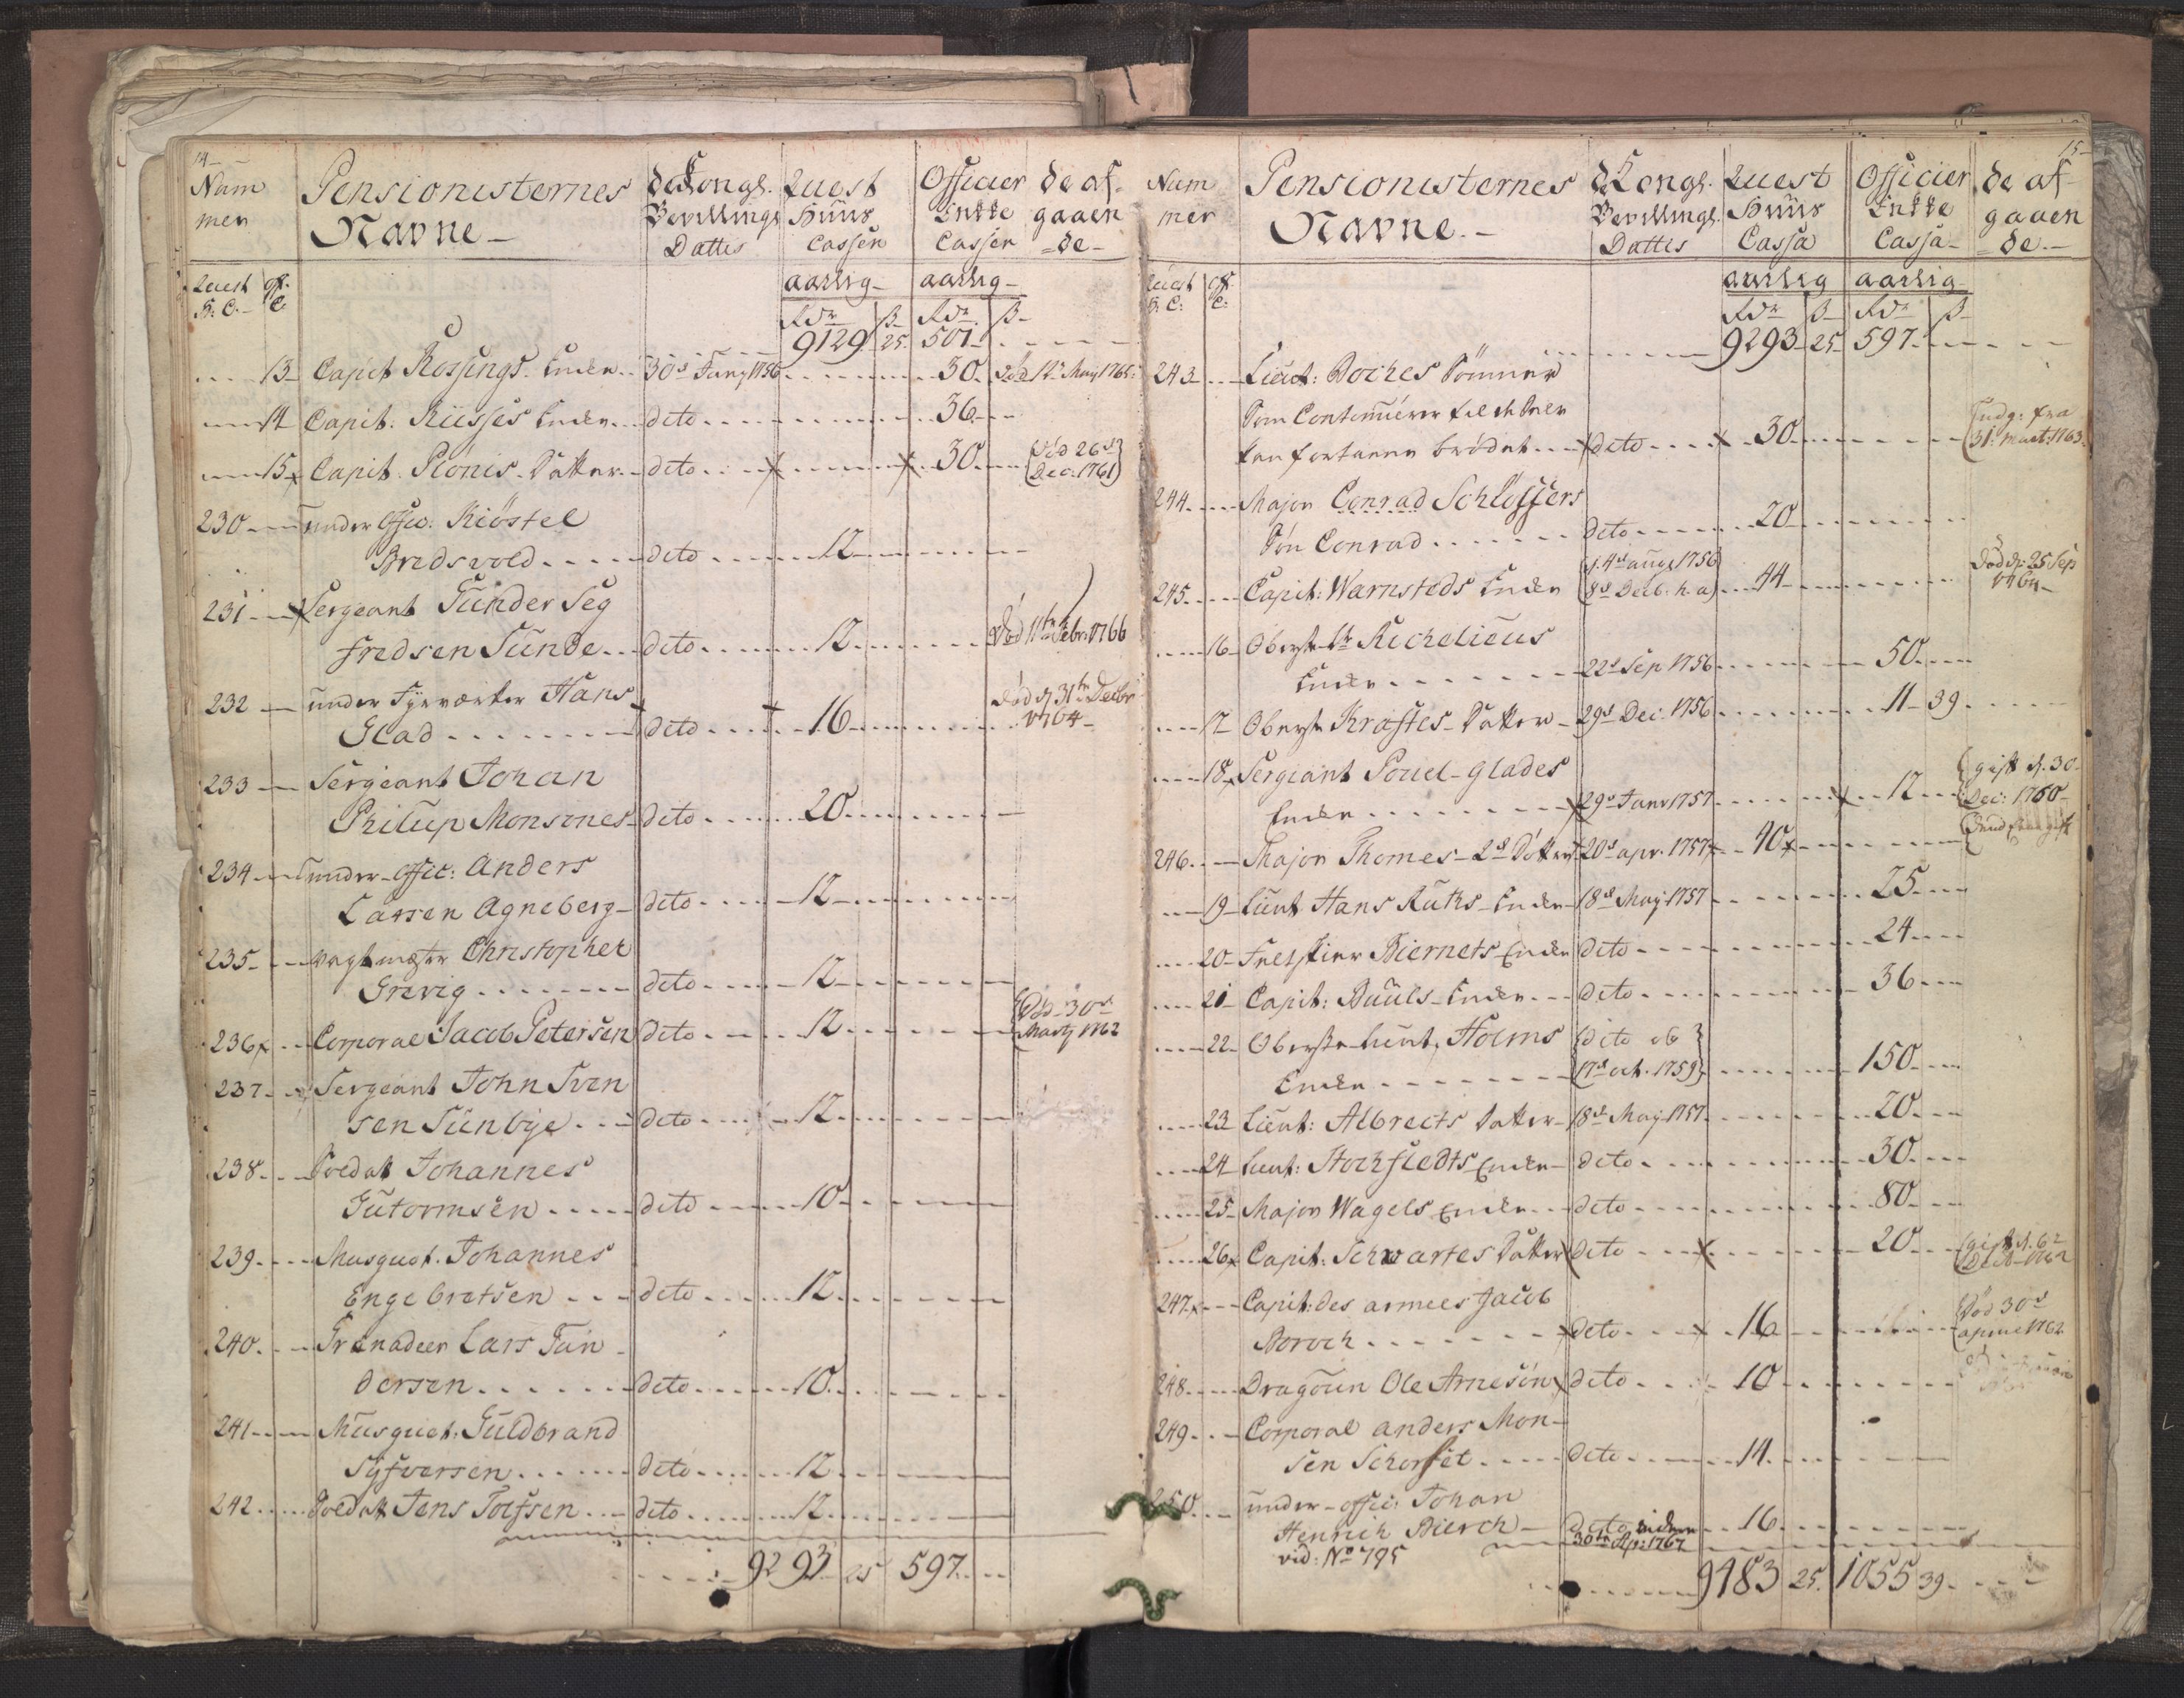 14
Num
mer
Pensionisternes
Navne
de Kongl.
Bevillings
Dattis
Quest
Huus
Cassen
Officier
Enkke
Cassen
de af-
gaaen
=de-
Quest
H: C.
Off.
C:
aarlig
aarlig
Rdr ß Rdr ß
9129 25 501
13 Capit Rossings Enke 30s Junij 1756 30 Død 12 May 1765
14 Capit. Riisses Enke dito 36
15 Capit. Pionis Datter dito 30 (Død 26de
Dec: 1761)
230 under Offic: Kiöstel
Bredsvold dito 12
231 Sergeant Gunder Seg
fredsen Sunde dito 12 Død 11te Febr: 1766
232 under Fyrværker Hans
Glad dito 16 Død d. 31te Decbr
1764
233 Sergeant Johan
Philup Monsenes dito 20
234 under-Offic: Anders
Larsen Agneberg dito 12
235 Vagtmester Christopher
Grevig dito 12
236 Corporal Jacob Petersen dito 12 Død 30d
Martj 1762
237 Sergeant John Sven
sen Sünbye dito 12
238 Soldat Johannes
Gutormsen dito 10
239 Musquet. Johannes
Engebretsen dito 12
240 Granadeer Lars Gun
dersen dito 10
241 Musquet: Guldbrand
Syfversen dito 12
242 Soldat Jens Tolfsen dito 12
9293 25 597
15
Num
mer
Pensionisternes
Navne
de Kongl.
Bevillings.
Dattis
Quest
Huus
Cassa
Officier
Enkke
Cassa
de af
gaaen
de
Quest
H: C:
Off.
C:
aarlig aarlig
Rdr ß Rdr ß
9293 25 597
243 Lieut: Boches Sønner
som Continuerer til de Selv
kan fortiene brødet dito 30 (Udg: fra
31: Mart: 1763
244 Major Conrad Schlössers
Søn Conrad dito 20
245 Capit: Warnsteds Enke (d. 4de aug 1756
8de Decb. h.a) 44 Død d: 25 Sep
1764
16 Oberst Lt Richelieus
Enke 22s Sep 1756 50
17 Oberst Krafts Datter 29s Dec. 1756 11 39
18 Sergiant Pouel Glades
Enke 29s Janv 1757 12 gift d. 30
Dec: 1760
246 Major Thomes 2de Døttre 20s apr. 1757 40
19 Lieut Hans Ruths Enke 18s May 1757 25
20 Feltskier Biernets Enke dito 24
21 Capit: Buuls Enke dito 36
22 Oberste Lieut. Holms
Enke dito og
17s oct. 1759 150
23 Lieut: Albrects Datter 18s May 1757 20
24 Lieut: Stockfledts Enke dito 30
25 Major Wagels Enke dito 80
26 Capit: Schwartes Datter dito 20 gift d. 6te
Decb 1762
247 Capit: des armees Jacob
Boroch dito 16 Død 30s
aprill 1762
248 Dragoun Ole Arnesøn dito 10
249 Corporal anders Mon-
sen Schorset dito 14
250 under-offic: Johan
Henrich Bierch dito 16
vid: No 795 30te Apr: 1767
9483 25 1055 39